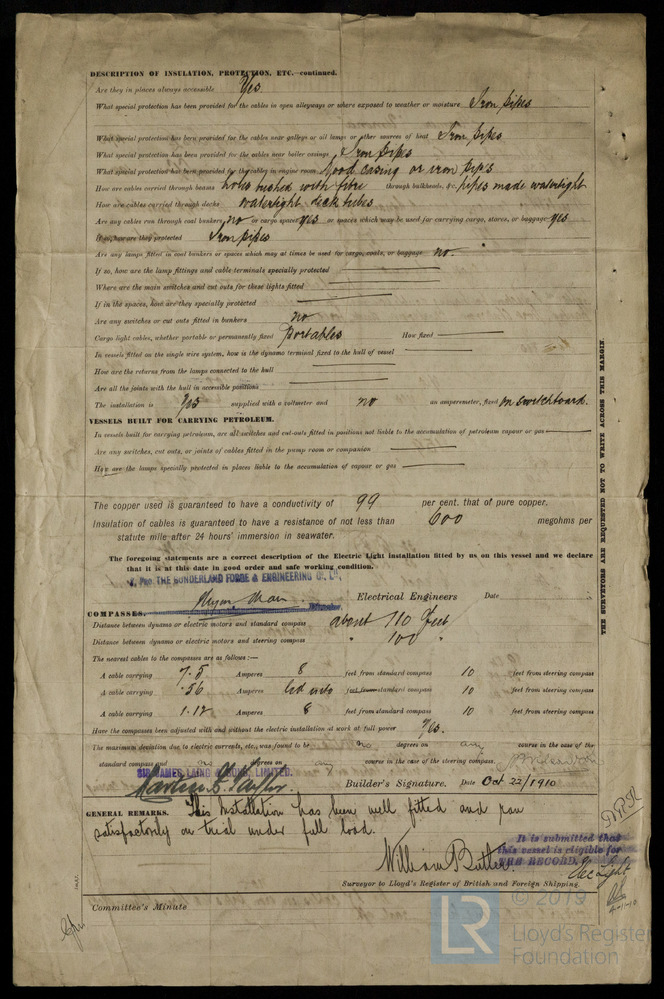 DESCRIPTION OF INSULATION, PROTECTION, ETC.—continued.
Are they in places always accessible Yes
What special protection has been provided for the cables in open alleyways or where exposed to weather or moisture Iron pipes
What special protection has been provided for the cables near galleys or oil lamps or other sources of heat Iron pipes
What special protection has been provided for the cables near boiler casings Iron pipes
What special protection has been provided for the cables in engine room Wood casing or iron pipes
How are cables carried through beams holes bushed with fibre through bulkheads, &c. pipes made watertight
How are cables carried through decks watertight deck tubes
Are any cables run through coal bunkers no or cargo spaces yes or spaces which may be used for carrying cargo, stores, or baggage yes
If so, how are they protected Iron pipes
Are any lamps fitted in coal bunkers or spaces which may at times be used for cargo, coals, or baggage no.
If so, how are the lamp fittings and cable terminals specially protected
Where are the main switches and cut outs for these lights fitted
If in the spaces, how are they specially protected
Are any switches or cut outs fitted in bunkers no
Cargo light cables, whether portable or permanently fixed Portables How fixed
In vessels fitted on the single wire system, how is the dynamo terminal fixed to the hull of vessel
How are the returns from the lamps connected to the hull
Are all the joints with the hull in accessible positions
The installation is yes supplied with a voltmeter and no an amperemeter, fixed on switchboard.
VESSELS BUILT FOR CARRYING PETROLEUM.
In vessels built for carrying petroleum, are all switches and cut-outs fitted in positions not liable to the accumulation of petroleum vapour or gas
Are any switches, cut outs, or joints of cables fitted in the pump room or companion
How are the lamps specially protected in places liable to the accumulation of vapour or gas
The copper used is guaranteed to have a conductivity of 99 per cent. that of pure copper.
Insulation of cables is guaranteed to have a resistance of not less than 600 megohms per
statute mile after 24 hours' immersion in seawater.
The foregoing statements are a correct description of the Electric Light installation fitted by us on this vessel and we declare
that it is at this date in good order and safe working condition.
THE SUNDERLAND FORGE & ENGINEERING Co. Ld.,
Electrical Engineers Date
COMPASSES.
Distance between dynamo or electric motors and standard compass about 110 feet
Distance between dynamo or electric motors and steering compass " 100 "
The nearest cables to the compasses are as follows:—
A cable carrying 7.5 Amperes 8 feet from standard compass 10 feet from steering compass
A cable carrying .56 Amperes led into feet from standard compass 10 feet from steering compass
A cable carrying 1.12 Amperes 8 feet from standard compass 10 feet from steering compass
Have the compasses been adjusted with and without the electric installation at work at full power Yes.
The maximum deviation due to electric currents, etc., was found to be no degrees on any course in the case of the
standard compass and no degrees on any course in the case of the steering compass.
SIR JAMES LAING & SONS, LIMITED.
Builder's Signature. Date Oct 22/1910
GENERAL REMARKS. This Installation has been well fitted and ran
satisfactorily on trial under full load.
It is submitted that
this vessel is eligible for
THE RECORD. Elec Light
William Butler
Surveyor to Lloyd's Register of British and Foreign Shipping.
Committee's Minute
THE SURVEYORS ARE REQUESTED NOT TO WRITE ACROSS THIS MARGIN.
© 2019
LR Lloyd's Register
Foundation